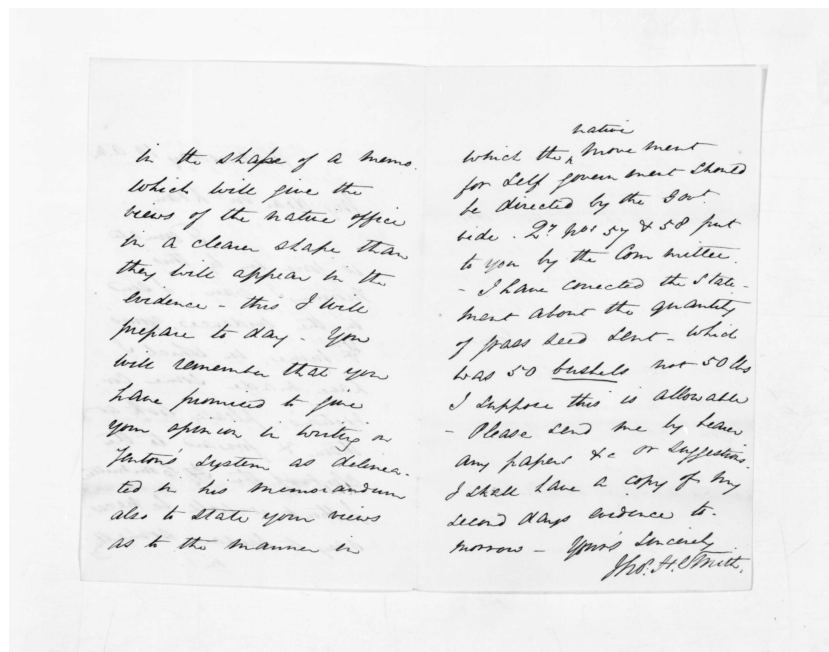 in the shape of a memo.
which will give the
views of the native office
in a clearer shape than
they will appear in the
evidence - this I will
prepare to day - You
will remember that you
have promised to give
your opinion in writing on
Fenton's system as delinea-
ted in his memorandum
also to state your views
as to the manner in
native
which the movement
for self government should
be directed by the Govt.
side. Nos 57 & 58 put
to you by the Committee.
- I have corrected the state-
ment about the quantity
of grass seed sent - which
was 50 bushels not 50 lbs
I suppose this is allowable
- Please send me by bearer
any papers &c or suggestions.
I shall have a copy of my
second days evidence to-
morrow - Yours sincerely
H. Smith.